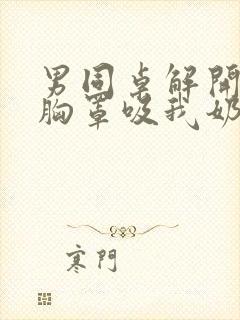 男同桌解開
胸罩吸我奶
寒門